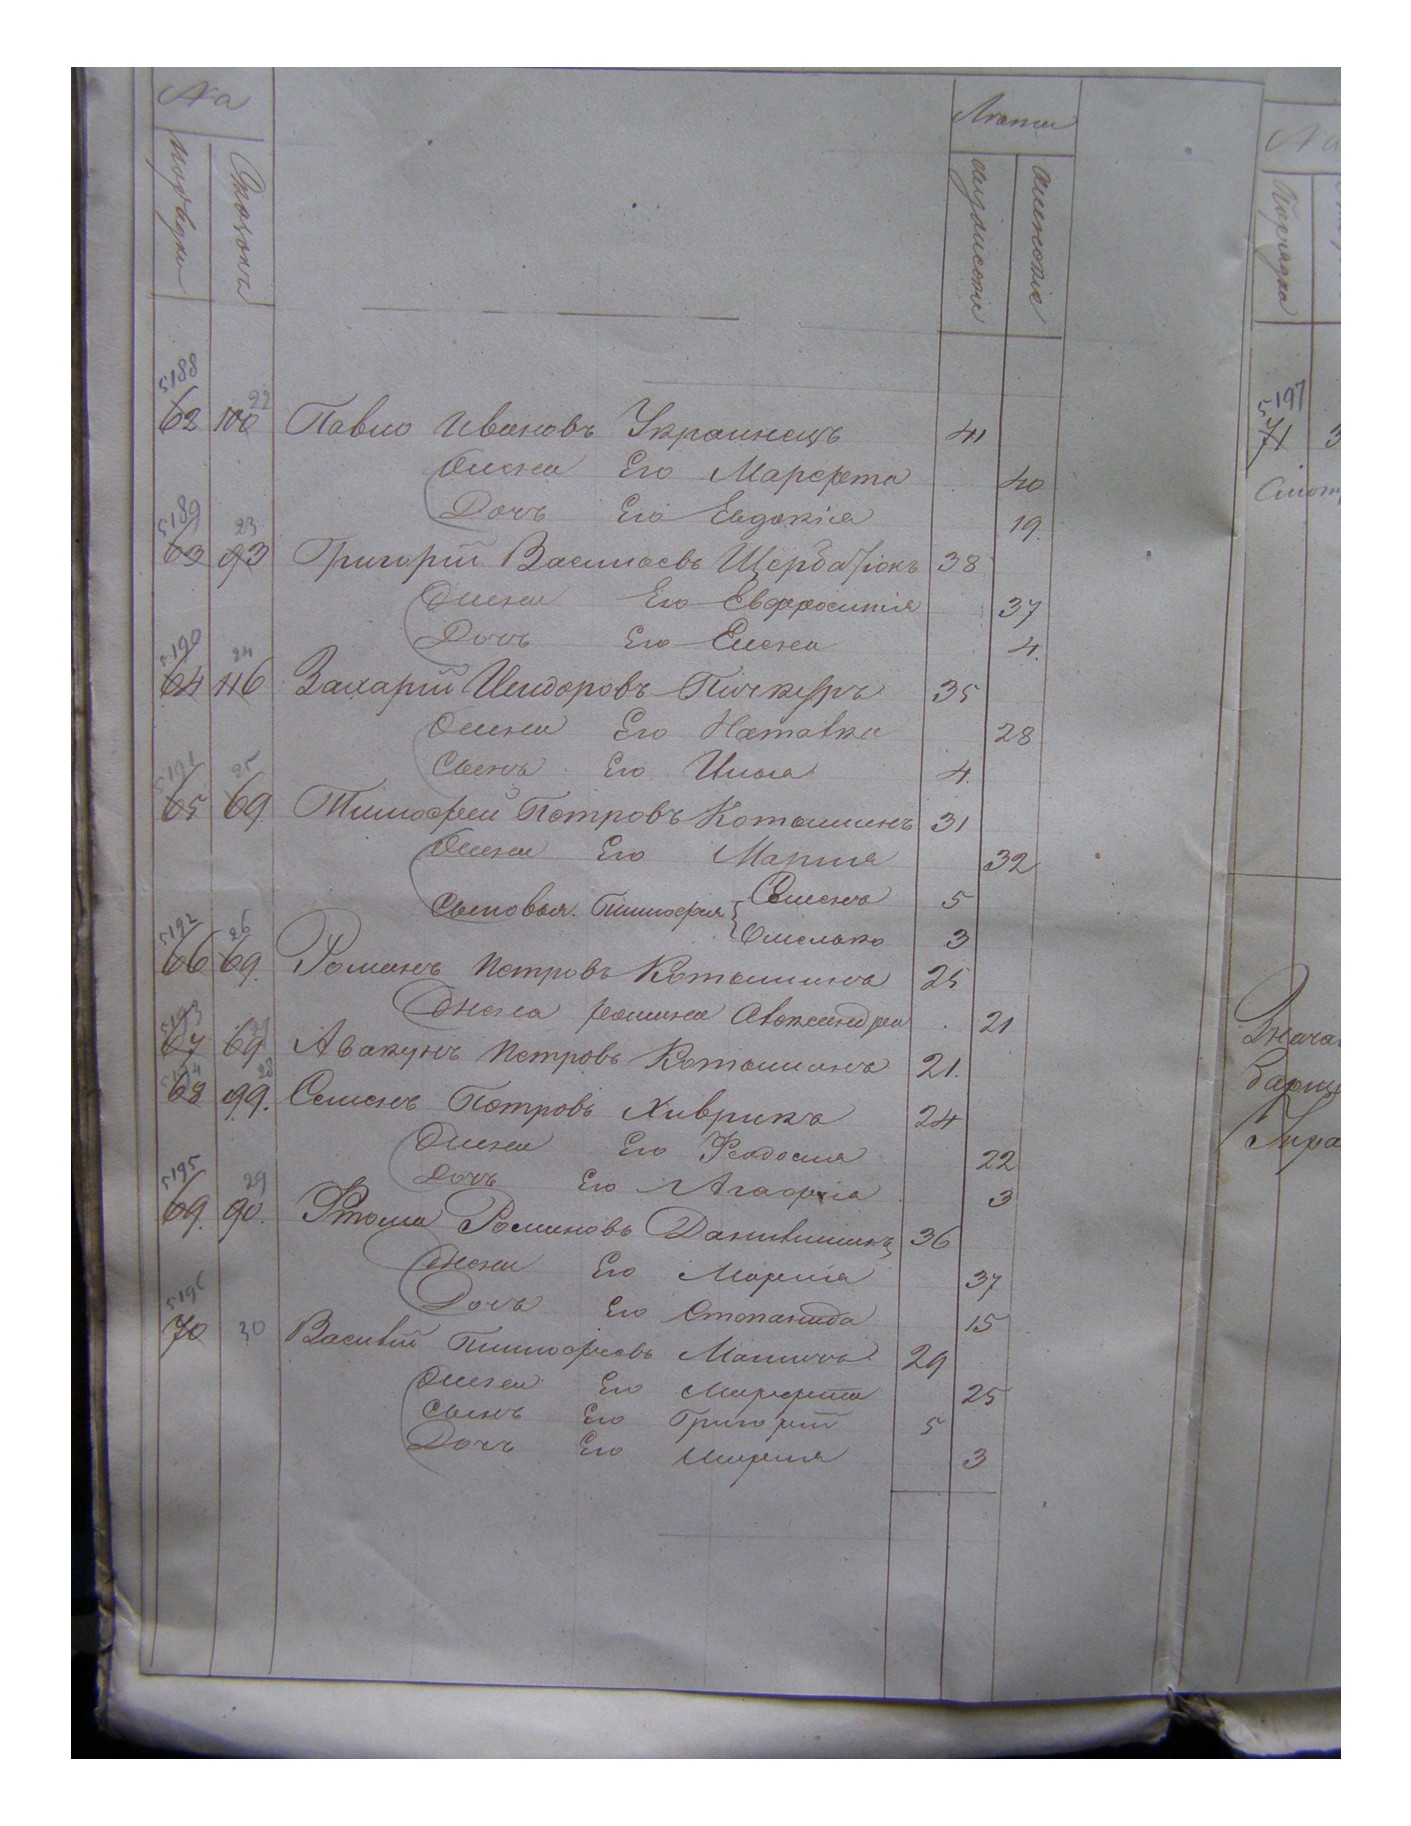 №а
Лѣта
мужиские
женские
Порядка
5188
62 100 22 Павло Ивановъ Украинецъ 41
Жена Его Марфета 40
Дочь Его Евдокія 19.
5189
63 93 23 Григорій Васильевъ Щербатюкъ 38
Жена Его Евфросинія 37
Дочь Его Елена 4.
5190
64 116 24 Захарій Исидоровъ Пичкуръ 35
Жена Его Наталка 28
Сынъ Его Илия 4.
5191
65 69 25 Тимофей Петровъ Котолинъ 31
Жена Его Мария 32
Сыновья Тимофея Семенъ 5
Омелько 3
5192
66 69. 26 Романъ Петровъ Котолинъ 25
Жена Романа Александра 21
5193
67 69 27 Авакумъ Петровъ Котолинъ 21.
5194
68 99. 28 Семенъ Петровъ Хиврикъ 24
Жена Его Феодосия 22
Дочь Его Агафия 3
5195
69. 90. 29 Фтома Романовъ 36
Жена Его Мария 37
Дочь Его Степанида 15
5196
70 30 Василий Тимофеевъ 29
Жена Его Марфета 25
Сынъ Его Григорій 5
Дочь Его Мария 3
№а
Порядка
5197
71 3